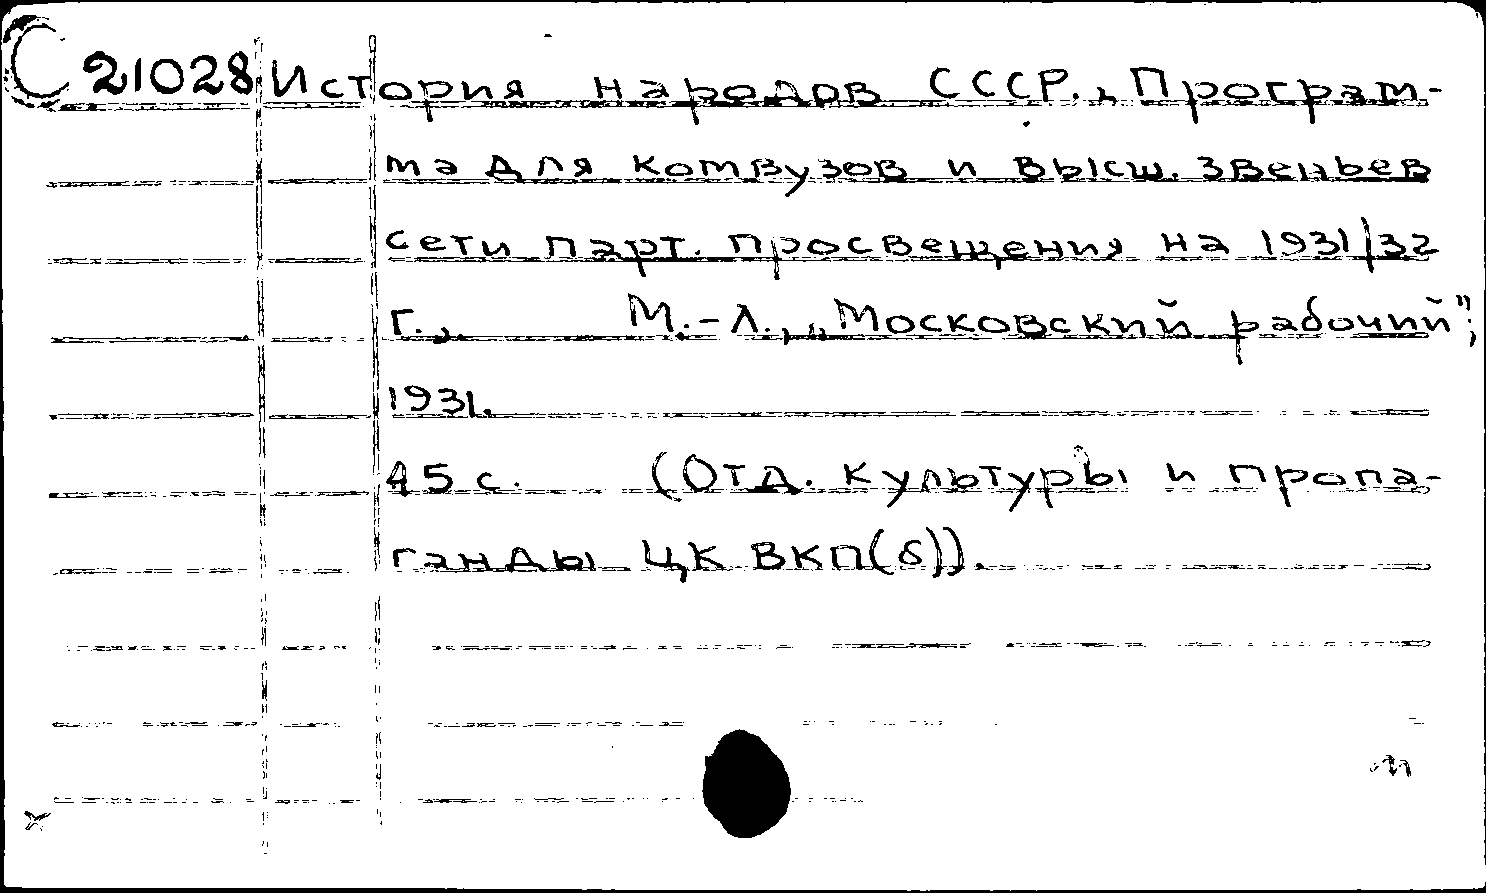 С 21028 История народов СССР., Програм-
ма для комвузов и высш. звеньев
сети парт. просвещения на 1931/32
г., М.-Л., „Московский рабочий",
1931.
45 с. (Отд. культуры и пропа-
ганды ЦК ВКП(б)).